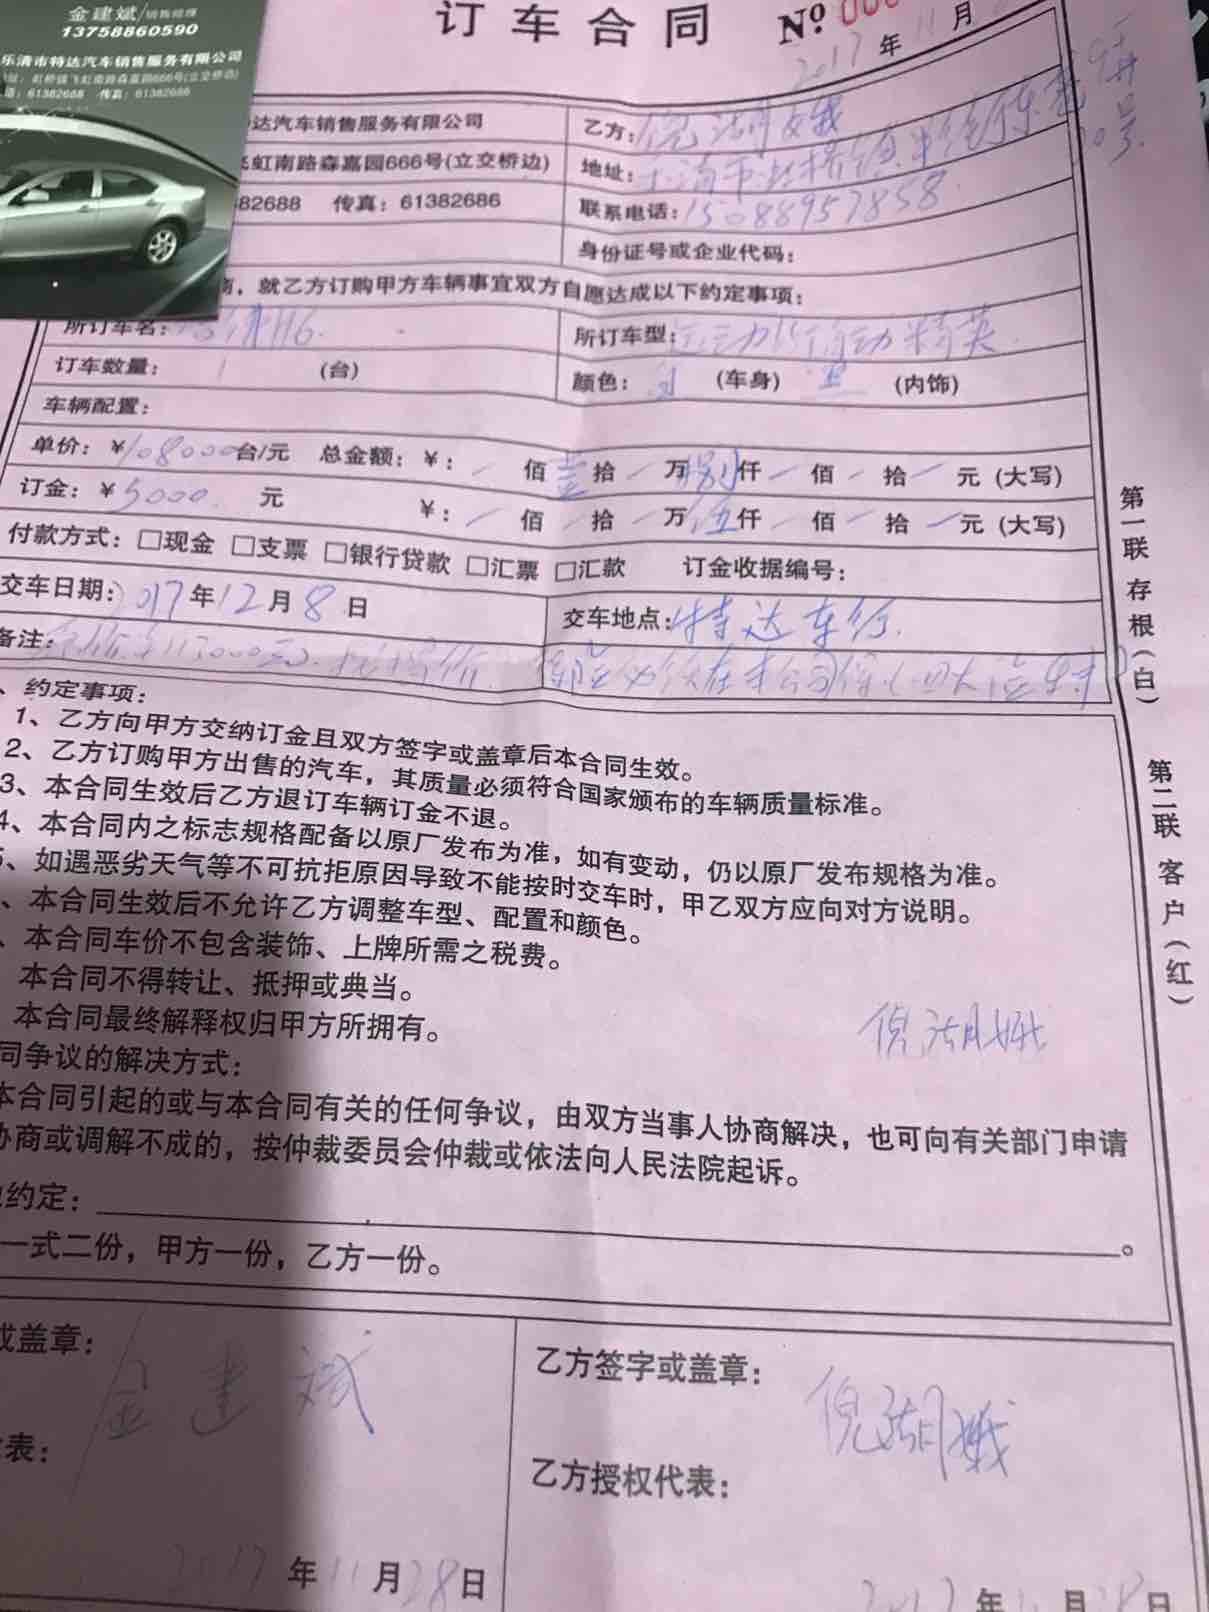 金建斌/销售经理
13758860590
乐清市特达汽车销售服务有限公司
虹桥镇飞虹南路森嘉园666号(立交桥边)
61382688 传真: 61382686
订车合同 Nº 00
2017年11月
达汽车销售服务有限公司
乙方: 倪湖娥
虹南路森嘉园666号(立交桥边)
地址: 上清市虹桥镇
82688 传真: 61382686
联系电话: 15088957858
身份证号或企业代码:
就乙方订购甲方车辆事宜双方自愿达成以下约定事项:
所订车名: H6
所订车型: 运动 自动精英
订车数量: 1 (台)
颜色: (车身) 黑 (内饰)
车辆配置:
单价: ¥108000台/元 总金额: ¥: 佰壹拾 万捌仟 佰 拾 元 (大写)
订金: ¥5000 元 ¥: 佰 拾 万伍仟 佰 拾 元 (大写)
付款方式: □现金 □支票 □银行贷款 □汇票 □汇款 订金收据编号:
交车日期: 2017年12月8日
交车地点: 特达车行
备注: 113000元 保险必须在本公司
、约定事项:
1、乙方向甲方交纳订金且双方签字或盖章后本合同生效。
2、乙方订购甲方出售的汽车，其质量必须符合国家颁布的车辆质量标准。
3、本合同生效后乙方退订车辆订金不退。
4、本合同内之标志规格配备以原厂发布为准，如有变动，仍以原厂发布规格为准。
5、如遇恶劣天气等不可抗拒原因导致不能按时交车时，甲乙双方应向对方说明。
、本合同生效后不允许乙方调整车型、配置和颜色。
、本合同车价不包含装饰、上牌所需之税费。
本合同不得转让、抵押或典当。
本合同最终解释权归甲方所拥有。
倪湖娥
同争议的解决方式:
本合同引起的或与本合同有关的任何争议，由双方当事人协商解决，也可向有关部门申请
协商或调解不成的，按仲裁委员会仲裁或依法向人民法院起诉。
约定:
。
一式二份，甲方一份，乙方一份。
或盖章:
金建斌
乙方签字或盖章:
倪湖娥
表:
乙方授权代表:
2017年11月28日
2017年11月28日
第一联 存根(白)
第二联 客户(红)